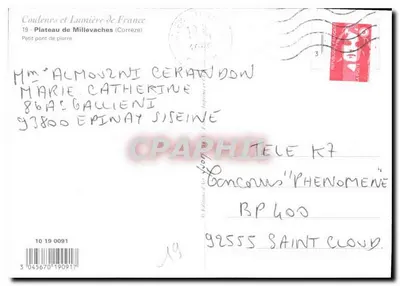 Couleurs et Lumière de France
19 - Plateau de Millevaches (Corrèze)
Petit pont de pierre
Mme ALMOUZNI CERANDON
MARIE CATHERINE
86A° GALLIENI
93800 EPINAY S/SEINE
CPARAMA
TELE K7
Concours "PHENOMENE"
BP 400
92555 SAINT CLOUD.
10 19 0091
19
3 045670 190917